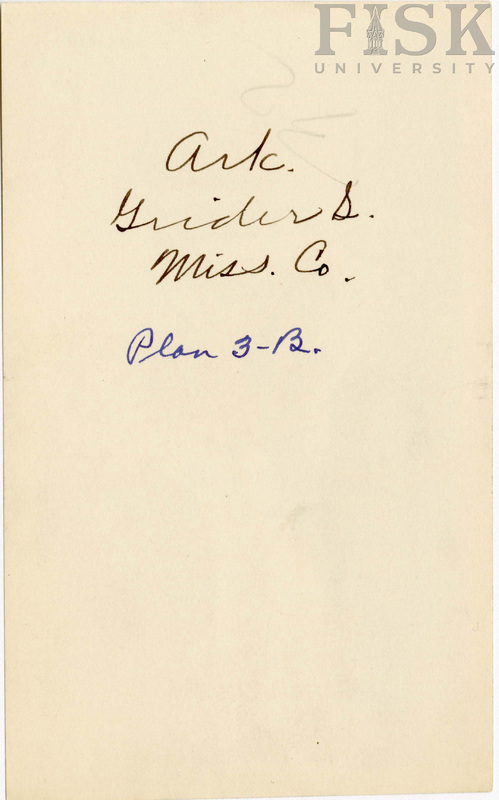 FISK
UNIVERSITY
Ark.
Grider S.
Miss. Co.
Plan 3-B.